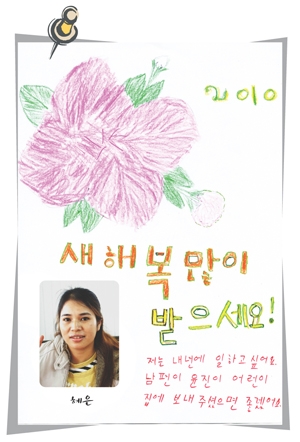 2010
새해 복 많이
받으세요!
저는 내년에 일하고 싶어요.
남편이 윤진이 어린이
집에 보내 주셨으면 좋겠어요.
체은